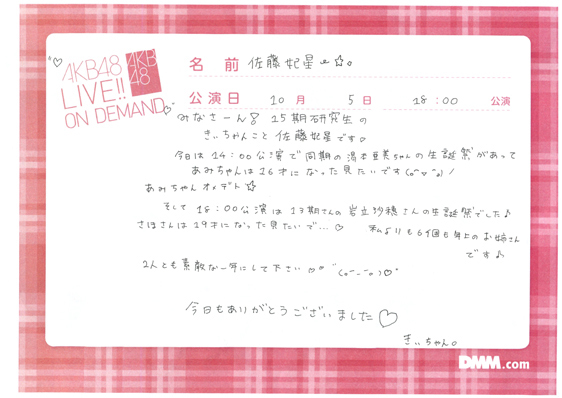 AKB48
LIVE!!
ON DEMAND
AKB
48
名 前 佐藤妃星
公演日 10月 5日 18:00 公演
みなさーん 15期研究生の
きぃちゃんこと 佐藤妃星です。
今日は 14:00公演で同期の湯本亜美ちゃんの生誕祭があって
あみちゃんは16才になった見たいです
あみちゃん オメデト☆
そして 18:00公演は 13期さんの岩立沙穂さんの生誕祭でした♪
さほさんは19才になった見たいで...♡ 私よりも6個も年上のお姉さん
です♪
2人とも素敵な一年にして下さい
今日もありがとうございました♡
きぃちゃん。
DMM.com